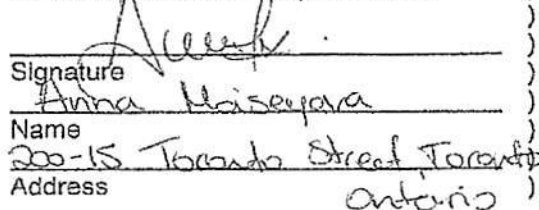 )
)
Signature )
Anna )
Name )
200-15 Toronto Street, Toronto
Address )
Ontario )